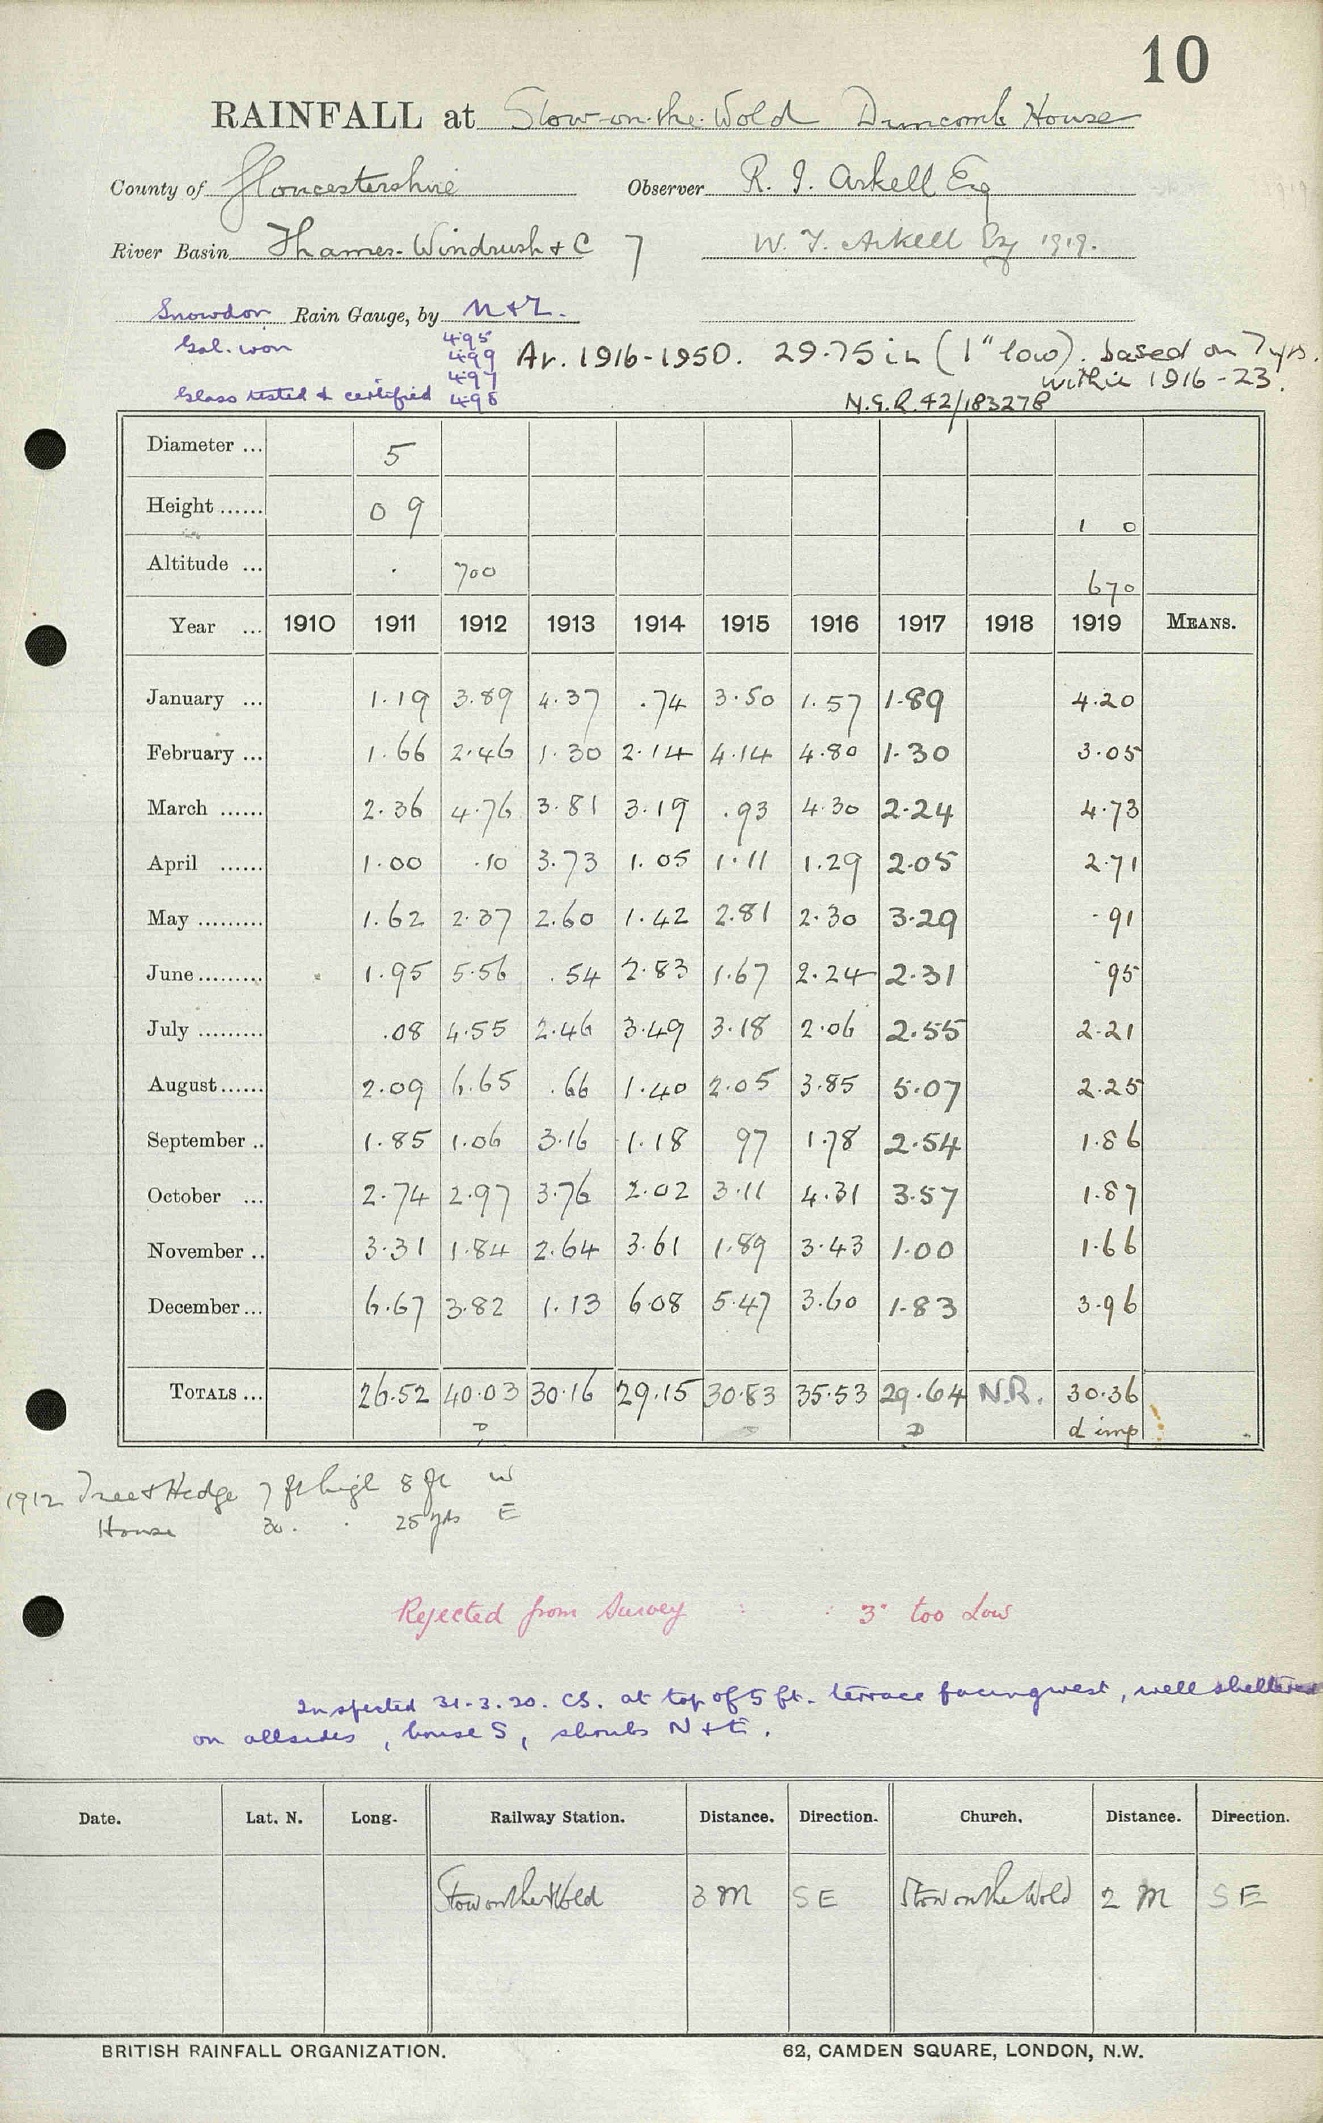 10
RAINFALL at Stow-on-the-Wold Duncomb House
County of Gloucestershire Observer R. J. Arkell Esq
River Basin Thames-Windrush & C 7 W. T. Arkell Esq 1919.
Snowdon Rain Gauge, by N & Z.
Gal. iron
Glass tested & certified
495
499
497
498
Av. 1916-1950. 29.75 in (1" low). based on 7 yrs.
within 1916-23.
N.G.R. 42/183278
Diameter ... 5
Height ...... 0 9 1 0
Altitude ... . 700 670
Year ... 1910 1911 1912 1913 1914 1915 1916 1917 1918 1919 MEANS.
January ... 1.19 3.89 4.37 .74 3.50 1.57 1.89 4.20
February ... 1.66 2.46 1.30 2.14 4.14 4.80 1.30 3.05
March ...... 2.36 4.76 3.81 3.19 .93 4.30 2.24 4.73
April ...... 1.00 .10 3.73 1.05 1.11 1.29 2.05 2.71
May ......... 1.62 2.37 2.60 1.42 2.81 2.30 3.29 .91
June ......... 1.95 5.56 .54 2.83 1.67 2.24 2.31 .95
July ......... .08 4.55 2.46 3.49 3.18 2.06 2.55 2.21
August ...... 2.09 6.65 .66 1.40 2.05 3.85 5.07 2.25
September .. 1.85 1.06 3.16 1.18 97 1.78 2.54 1.86
October ... 2.74 2.97 3.76 2.02 3.11 4.31 3.57 1.87
November .. 3.31 1.84 2.64 3.61 1.89 3.43 1.00 1.66
December ... 6.67 3.82 1.13 6.08 5.47 3.60 1.83 3.96
TOTALS ... 26.52 40.03 30.16 29.15 30.83 35.53 29.64 N.R. 30.36
D D d imp
1912 Tree & Hedge 7 ft high 8 ft W
House 30 . 25 yds E
Rejected from Survey : : 3" too Low
Inspected 31-3.20. CS. at top of 5 ft. terrace facing west, well sheltered
on all sides, house S, shrubs N & E.
Date. Lat. N. Long. Railway Station. Distance. Direction. Church. Distance. Direction.
Stow on the Wold 3 M SE Stow on the Wold 2 M SE
BRITISH RAINFALL ORGANIZATION. 62, CAMDEN SQUARE, LONDON, N.W.